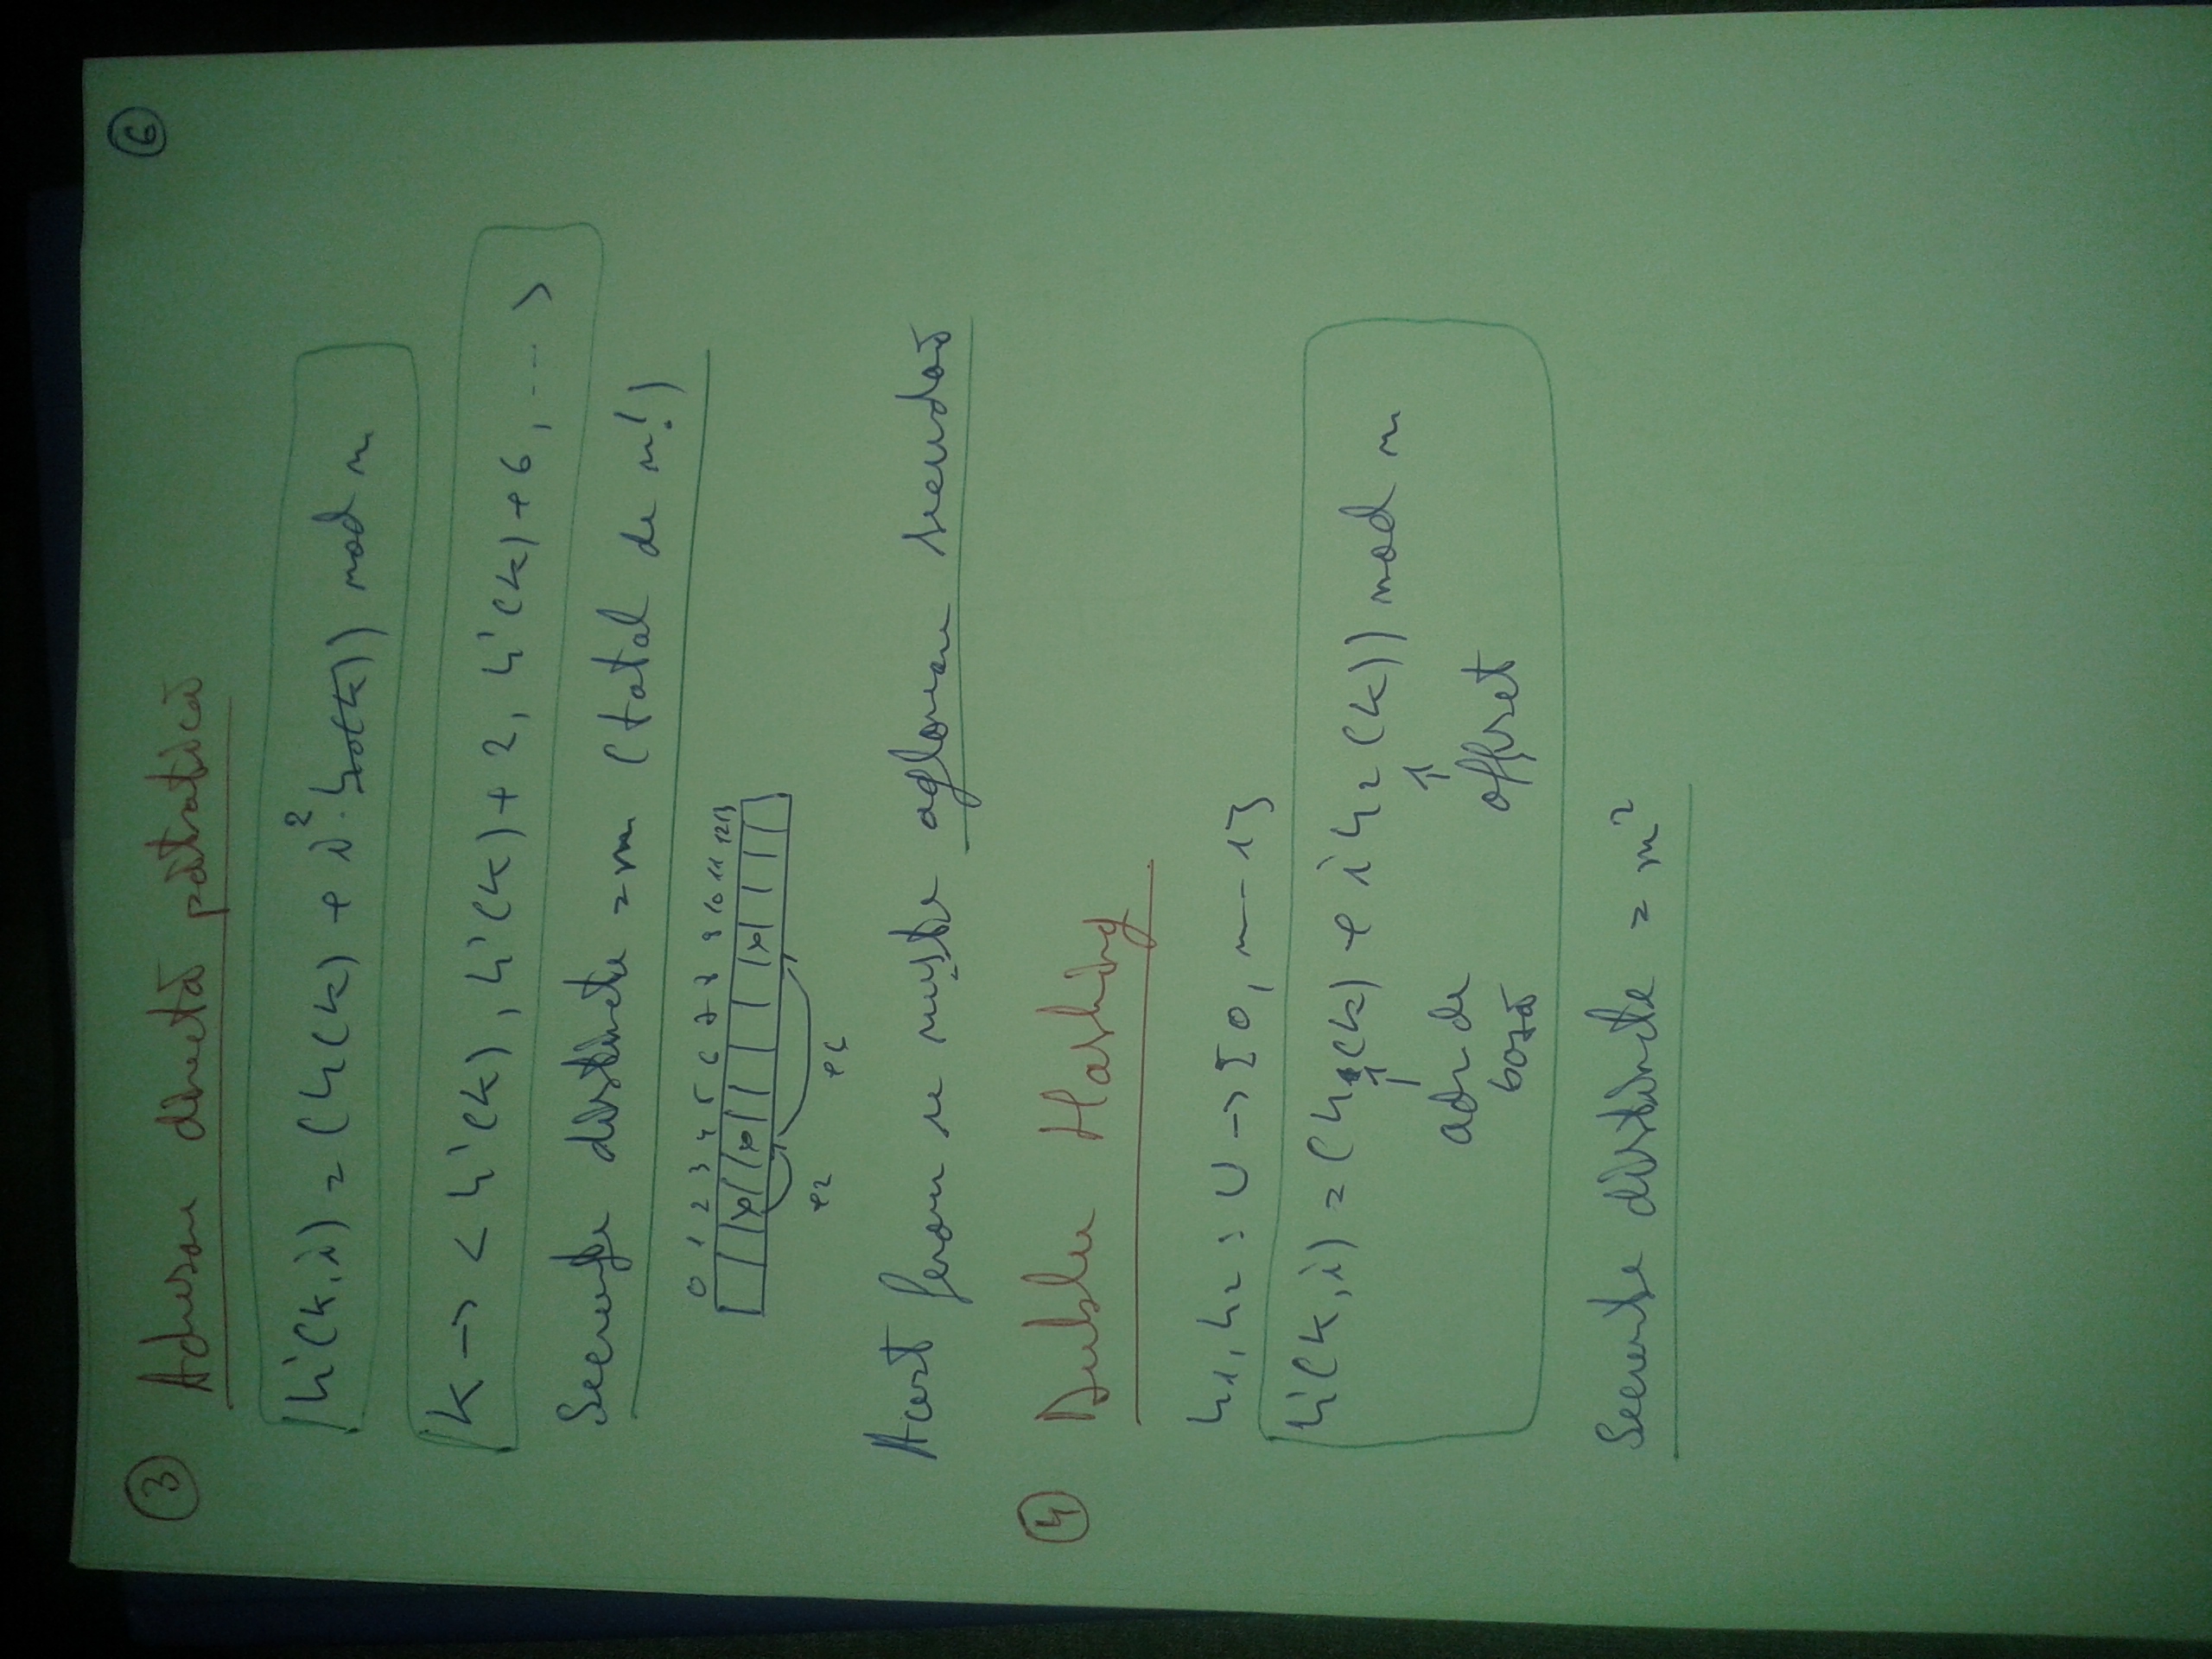 6
3 Adresare directă pătratică
h'(k,i) = (h(k) + i²·) mod m
k -> < h'(k), h'(k)+2, h'(k)+6, ... >
Secvențe distincte = m (total de m!)
0 1 2 3 4 5 6 7 8 9 10 11 12 13
x x x
+2 +6
Acest fenom se numește aglomerare secundară
4 Dublu Hashing
h1, h2 : U -> {0, m-1}
h'(k,i) = (h1(k) + i h2(k)) mod m
adr de offset
bază
Secvențe distincte = m²